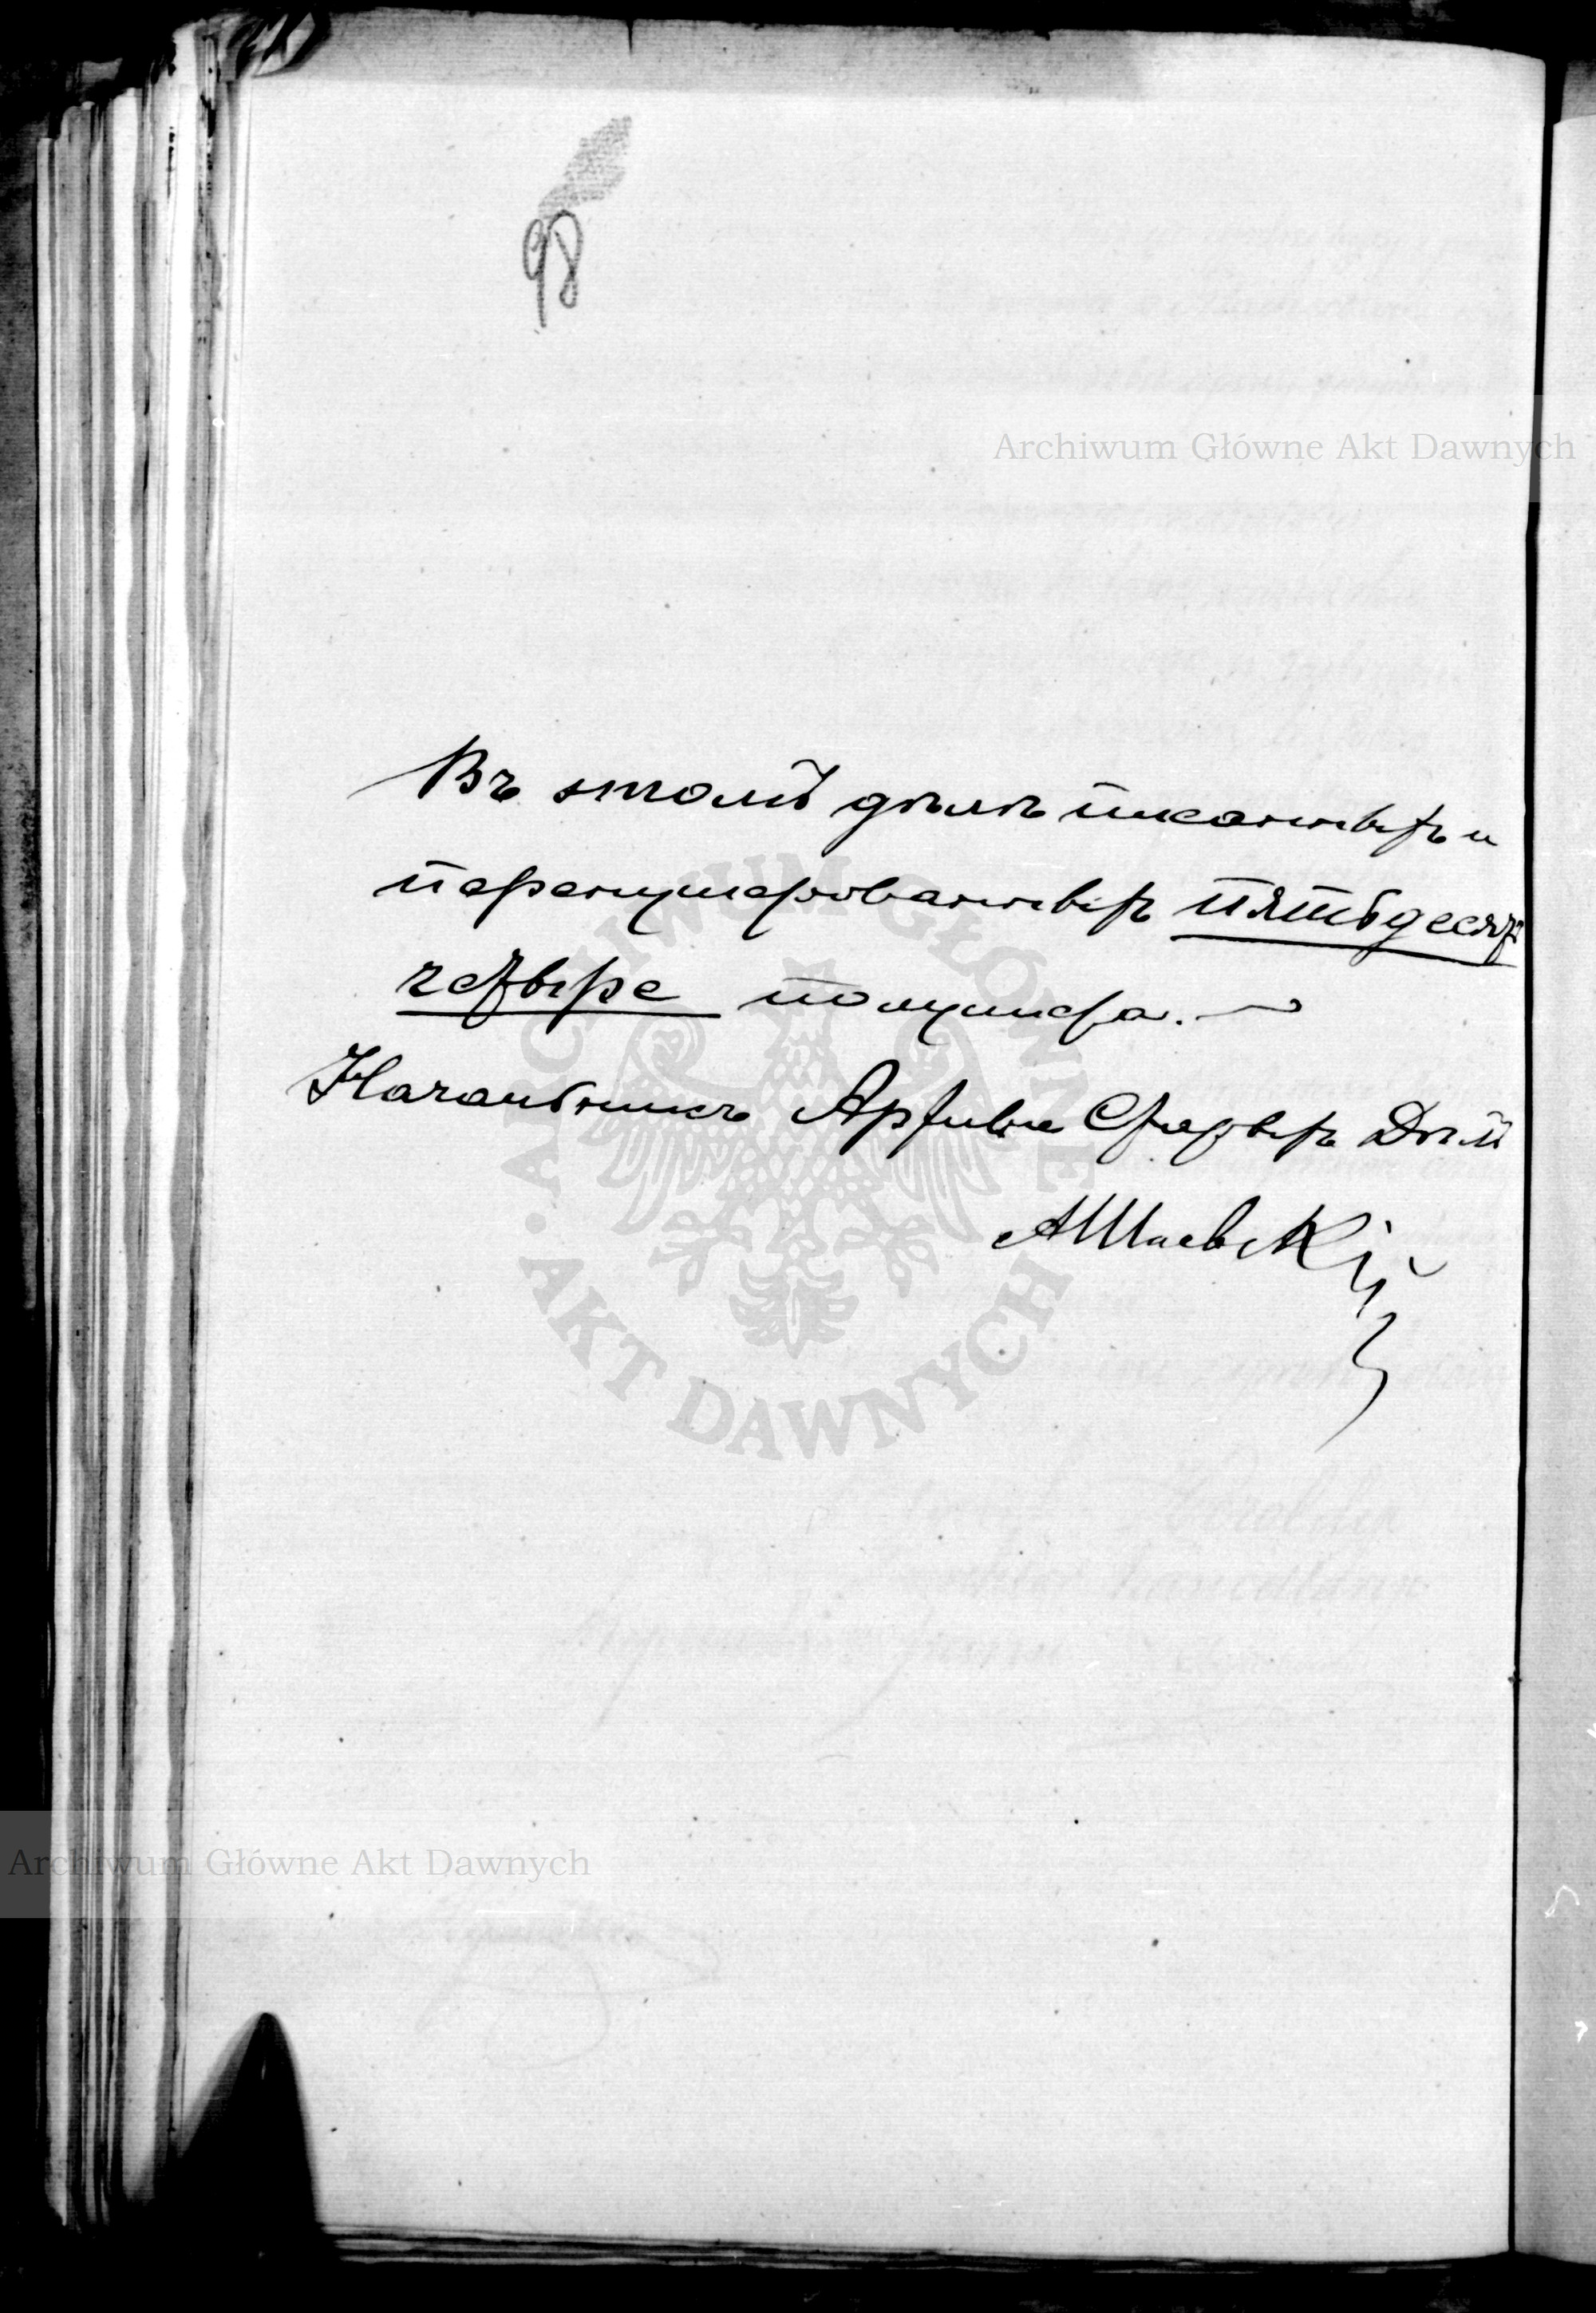 98
Archiwum Główne Akt Dawnych
Въ этомъ дѣлѣ писанныхъ и
перенумерованныхъ пятьдесятъ
четыре полулиста.
Начальникъ Архива Старыхъ Дѣлъ
АРСHIWUM GŁÓWNE AKT DAWNYCH
Archiwum Główne Akt Dawnych